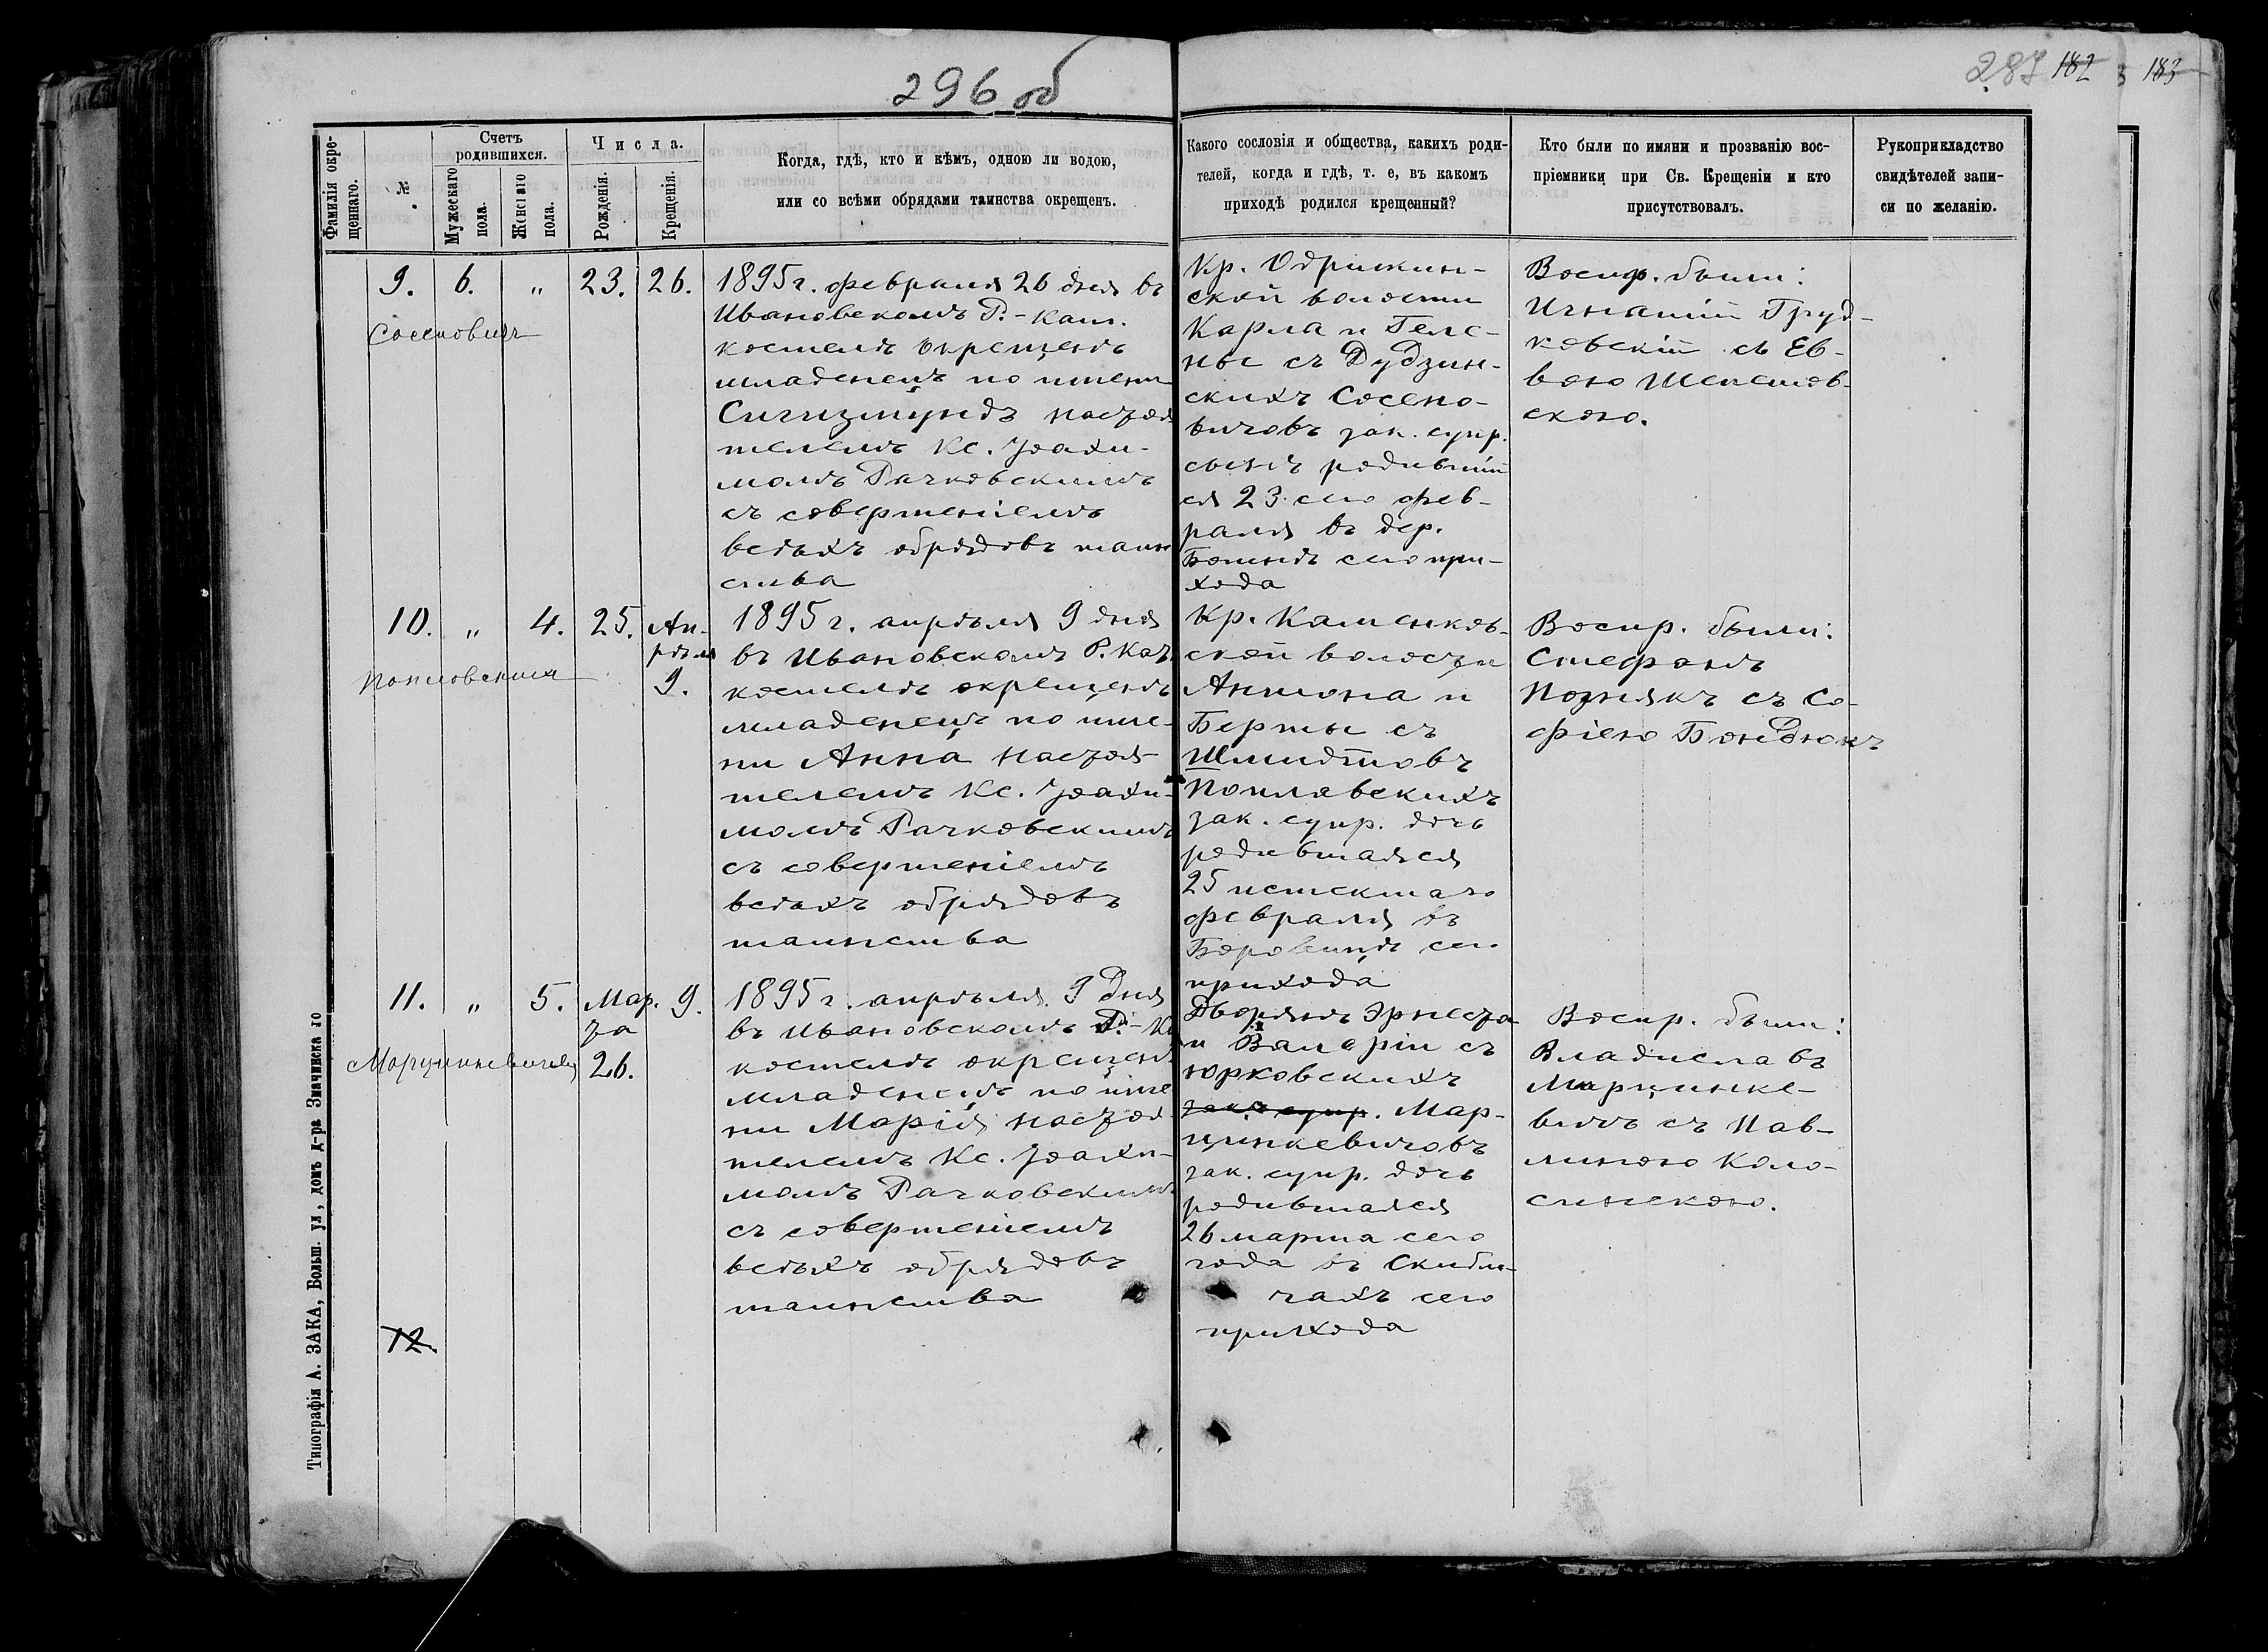 296 об
287 182 183
Фамилія окре-
щеннаго.
№
Счетъ
родившихся.
Мужескаго
пола.
Женскаго
пола.
Числа.
Рожденія.
Крещенія.
Когда, гдѣ, кто и кѣмъ, одною ли водою,
или со всѣми обрядами таинства окрещенъ.
Какого сословія и общества, какихъ роди-
телей, когда и гдѣ, т. е, въ какомъ
приходѣ родился крещенный?
Кто были по имяни и прозванію вос-
пріемники при Св. Крещеніи и кто
присутствовалъ.
Рукоприкладство
свидѣтелей запи-
си по желанію.
9. 6. „ 23. 26.
Сосеновичъ
1895 г. февраля 26 дня въ
Ивановскомъ Р.-Кат.
костелѣ окрещенъ
младенецъ по имени
Сигизмундъ настоя
телемъ Кс. Іоахи-
момъ Рачковскимъ
съ совершеніемъ
всѣхъ обрядовъ таин
ства
Кр. Одрижин-
ской волости
Карла и Геле-
ны съ Дудзин-
скихъ Сосено-
вичовъ зак. супр.
сынъ родившій
ся 23 сего фев-
раля въ дер.
сего при-
хода
Воспр. были:
Игнатій Груд-
ковскій съ Ев-
вою Шепетов-
скою.
10. „ 4. 25. Ап-
рѣля
9.
Поплавская
1895 г. апрѣля 9 дня
въ Ивановскомъ Р. Кат
костелѣ окрещенъ
младенецъ по име-
ни Анна настоя-
телемъ Кс. Іоахи-
момъ Рачковскимъ
съ совершеніемъ
всѣхъ обрядовъ
таинства
Кр. Каменков-
ской волости
Антона и
Берты съ
Шмидтовъ
Поплавскихъ
зак. супр. дочь
родившаяся
25 истекшаго
февраля въ
Боровицѣ сего
прихода
Воспр. были:
Стефанъ
Познякъ съ Со-
фіею Бондюкъ
11. „ 5. Мар. 9.
та
26.
Марцинкевичовъ
1895 г. апрѣля 9 дня
въ Ивановскомъ Р.-Ка
костелѣ окрещенъ
младенецъ по име
ни Марія настоя-
телемъ Кс. Іоахи-
момъ Рачковскимъ
съ совершеніемъ
всѣхъ обрядовъ
таинства
Дворянъ Эрнеста
и Валеріи съ
Юрковскихъ
зак. супр. Мар-
цинкевичовъ
зак. супр. дочь
родившаяся
26 марта сего
года въ Скибли-
чахъ сего
прихода
Воспр. были:
Владиславъ
Марцинке-
вичъ съ Пав-
линою Коло-
синскою.
12.
Типографія А. ЗАКА, Больш. ул, домъ д-ра Змачинскаго